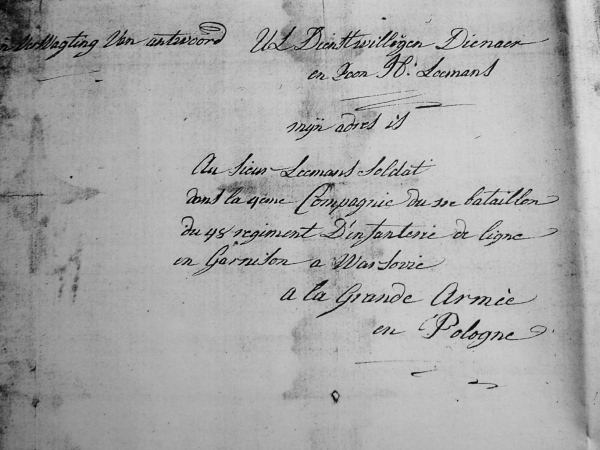 in verWagting Van antwoord
UL Dienstwilligen Dienaer
en Zoon H. Leemans
mijn adres is
Au Sieur Leemans Soldat
dans la 4eme Compagnie du bataillon
du 48 regiment D'infanterie de ligne
en Garnison a Warsovie
a la Grande Armée
en Pologne